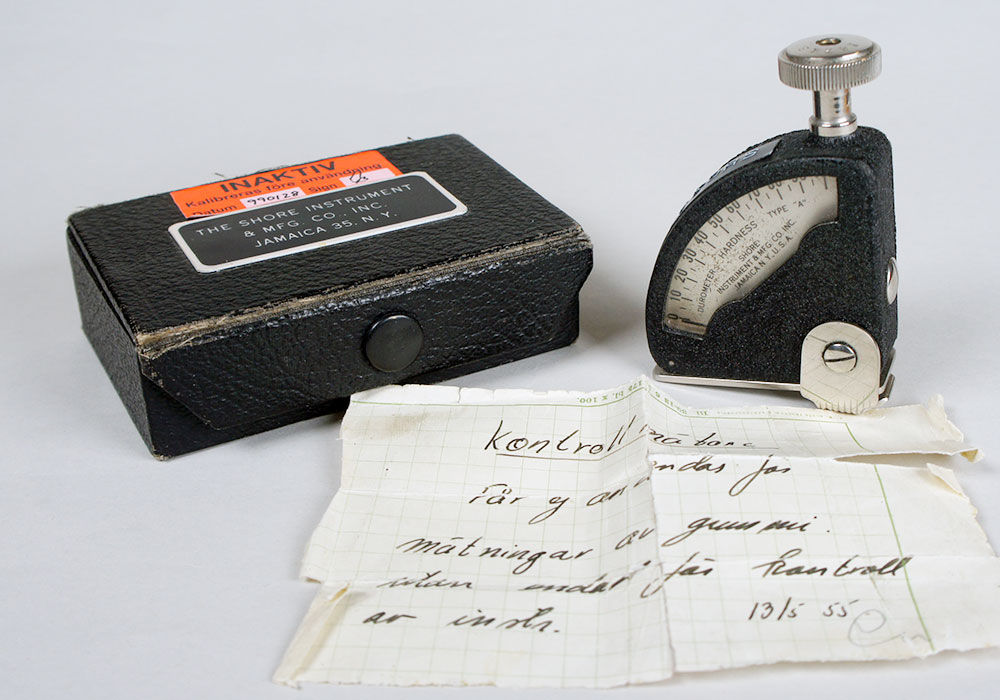 INAKTIV
Kalibreras före användning
Datum 990128 Sign
THE SHORE INSTRUMENT
& MFG. CO., INC.
JAMAICA 35, N.Y.
0 10 20 30 40 50 60 70 80
DUROMETER-HARDNESS TYPE "A"
SHORE
INSTRUMENT & MFG. CO. INC.
JAMAICA N.Y. U.S.A.
bl. x 100.
Kontroll
Får ej användas för
mätningar av gummi.
utan endast för kontroll
av instr. 13/5 55